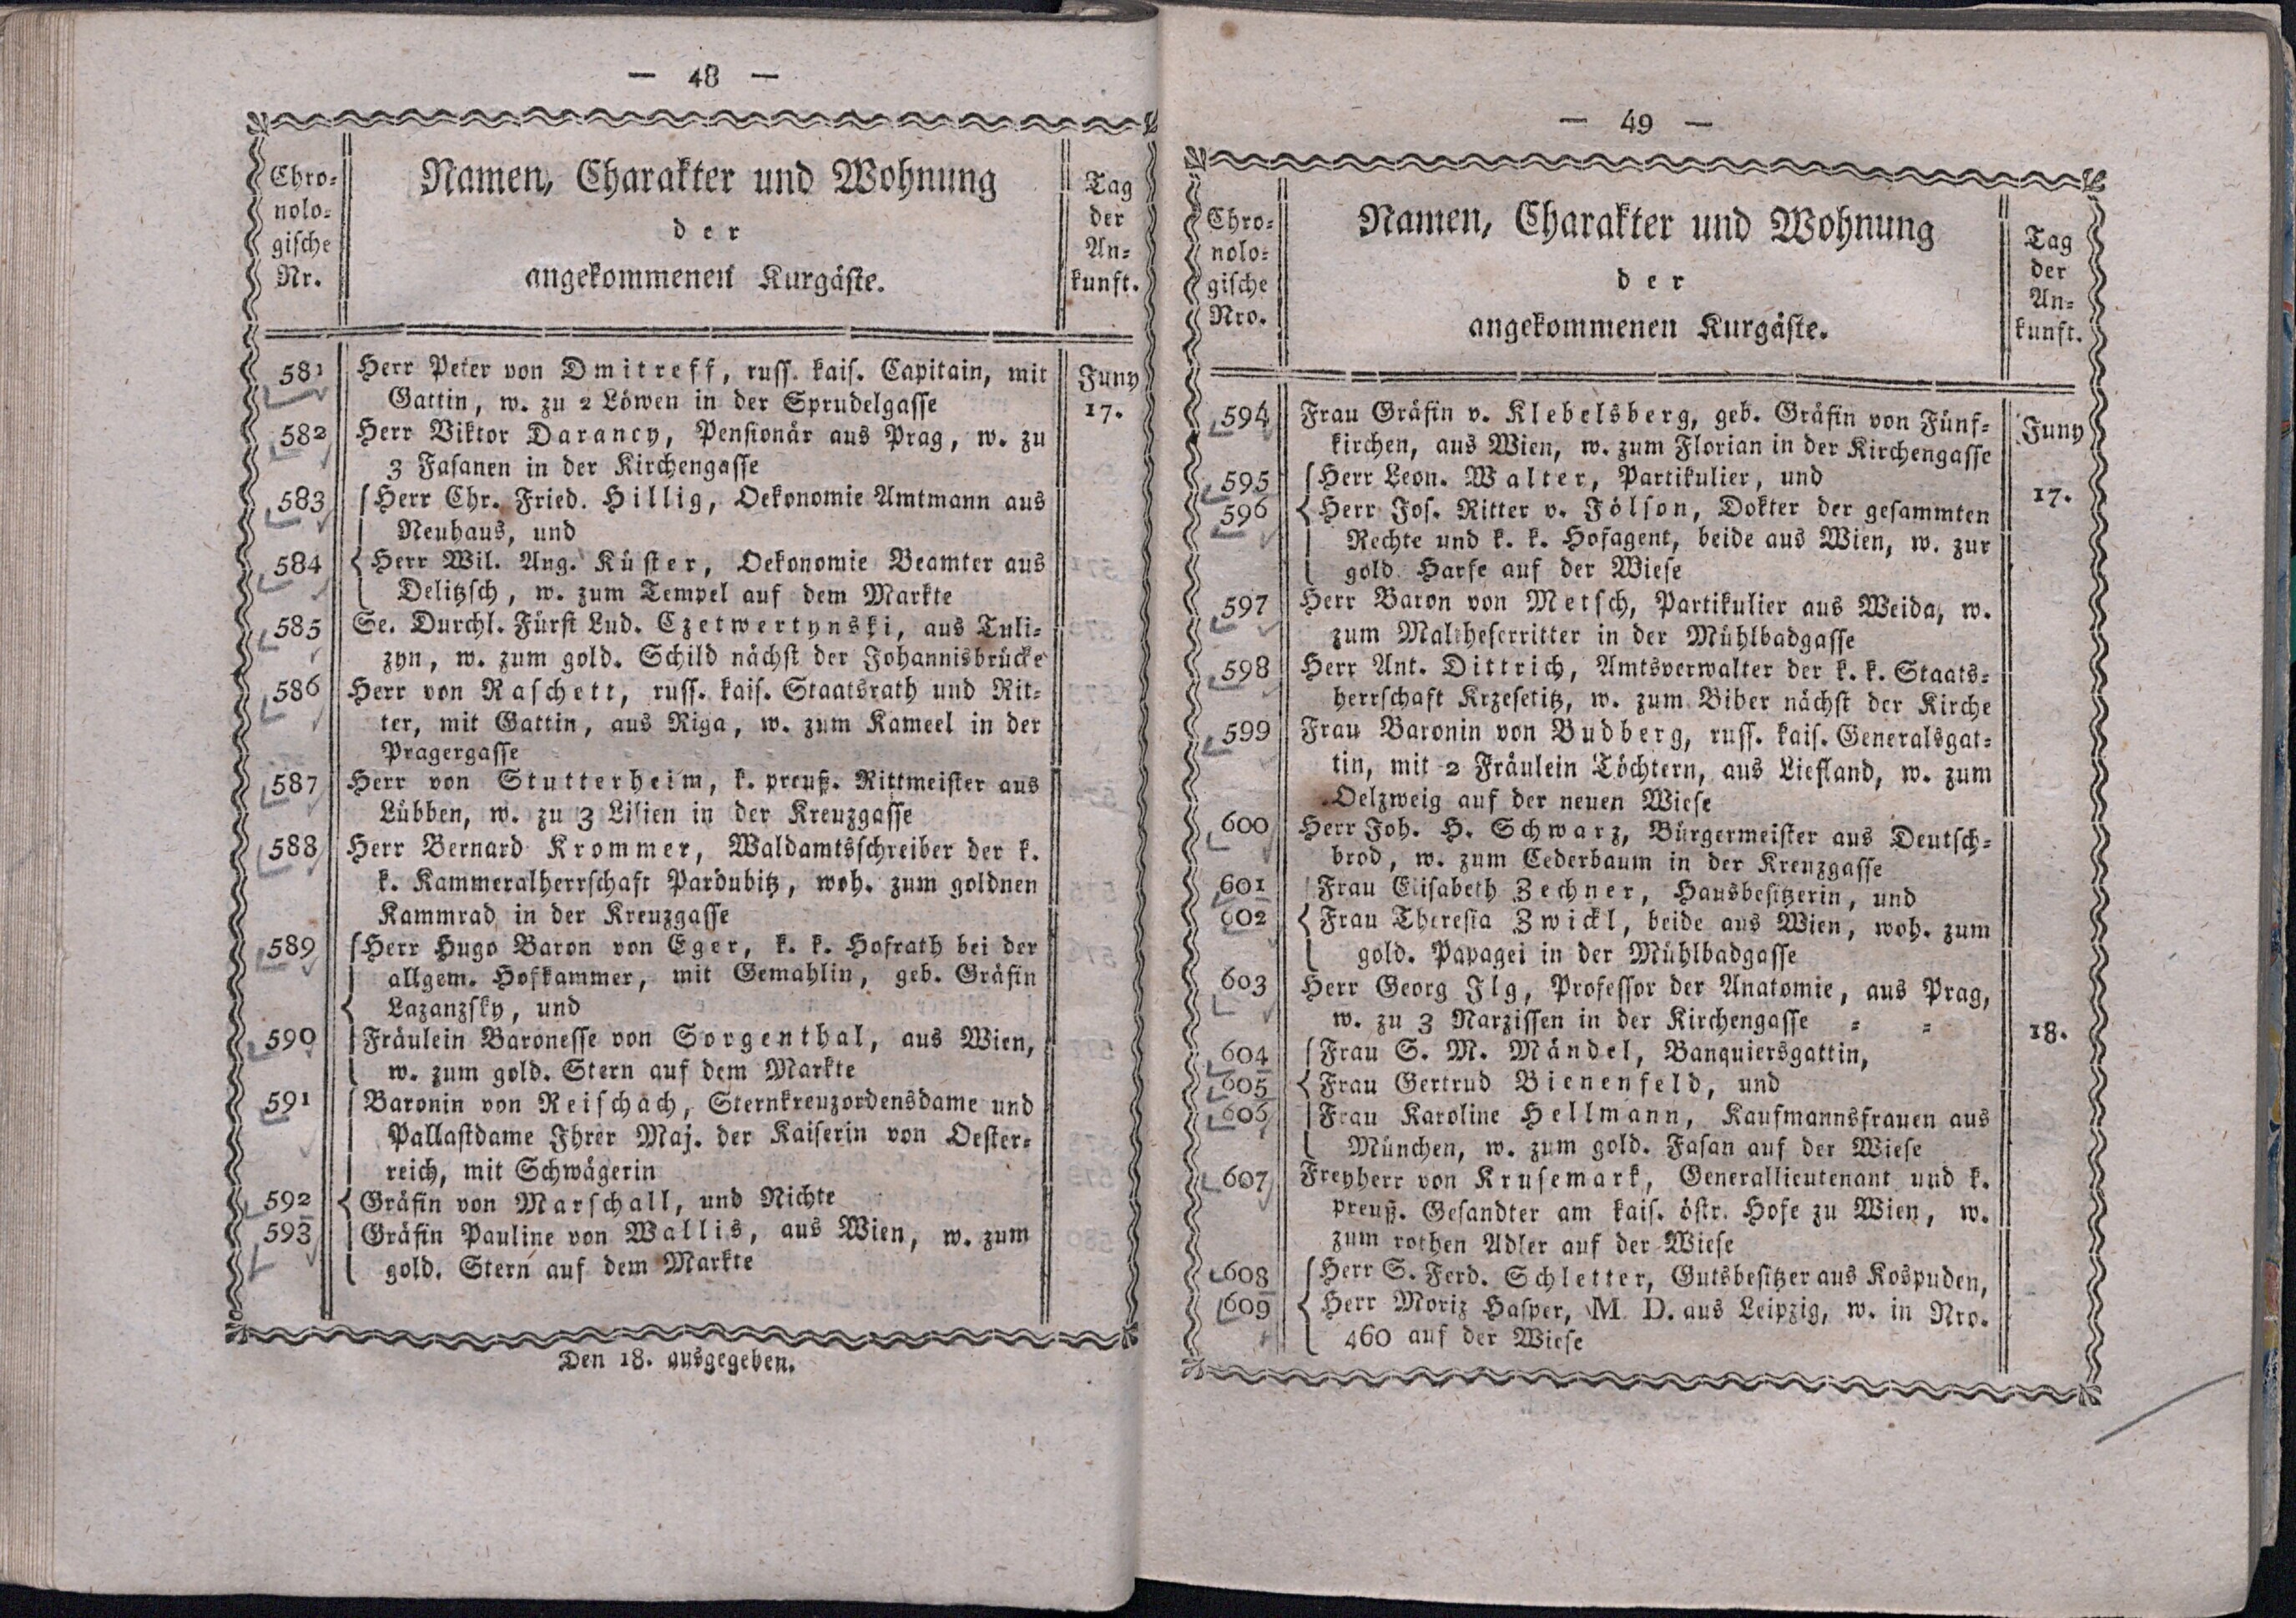 — 48 —
Chro-
nolo-
gische
Nr.
Namen, Charakter und Wohnung
der
angekommenen Kurgäste.
Tag
der
An-
kunft.
581 Herr Peter von Dmitreff, russ. kais. Capitain, mit Juny
Gattin, w. zu 2 Löwen in der Sprudelgasse 17.
582 Herr Viktor Darancy, Pensionär aus Prag, w. zu
3 Fasanen in der Kirchengasse
583 Herr Chr. Fried. Hillig, Oekonomie Amtmann aus
Neuhaus, und
584 Herr Wil. Aug. Küster, Oekonomie Beamter aus
Delitzsch, w. zum Tempel auf dem Markte
585 Se. Durchl. Fürst Lud. Czetwertynski, aus Tuli-
zyn, w. zum gold. Schild nächst der Johannisbrücke
586 Herr von Raschett, russ. kais. Staatsrath und Rit-
ter, mit Gattin, aus Riga, w. zum Kameel in der
Pragergasse
587 Herr von Stutterheim, k. preuß. Rittmeister aus
Lübben, w. zu 3 Lilien in der Kreuzgasse
588 Herr Bernard Krommer, Waldamtsschreiber der k.
k. Kammeralherrschaft Pardubitz, woh. zum goldnen
Kammrad in der Kreuzgasse
589 Herr Hugo Baron von Eger, k. k. Hofrath bei der
allgem. Hofkammer, mit Gemahlin, geb. Gräfin
Lazanzsky, und
590 Fräulein Baronesse von Sorgenthal, aus Wien,
w. zum gold. Stern auf dem Markte
591 Baronin von Reischach, Sternkreuzordensdame und
Pallastdame Ihrer Maj. der Kaiserin von Oester-
reich, mit Schwägerin
592 Gräfin von Marschall, und Nichte
593 Gräfin Pauline von Wallis, aus Wien, w. zum
gold. Stern auf dem Markte
Den 18. ausgegeben.
— 49 —
Chro-
nolo-
gische
Nro.
Namen, Charakter und Wohnung
der
angekommenen Kurgäste.
Tag
der
An-
kunft.
594 Frau Gräfin v. Klebelsberg, geb. Gräfin von Fünf- Juny
kirchen, aus Wien, w. zum Florian in der Kirchengasse
595 Herr Leon. Walter, Partikulier, und 17.
596 Herr Jos. Ritter v. Fölson, Dokter der gesammten
Rechte und k. k. Hofagent, beide aus Wien, w. zur
gold. Harfe auf der Wiese
597 Herr Baron von Metsch, Partikulier aus Weida, w.
zum Maltheserritter in der Mühlbadgasse
598 Herr Ant. Dittrich, Amtsverwalter der k. k. Staats-
herrschaft Krzesetitz, w. zum Biber nächst der Kirche
599 Frau Baronin von Budberg, russ. kais. Generalsgat-
tin, mit 2 Fräulein Töchtern, aus Liefland, w. zum
Oelzweig auf der neuen Wiese
600 Herr Joh. H. Schwarz, Bürgermeister aus Deutsch-
brod, w. zum Cederbaum in der Kreuzgasse
601 Frau Elisabeth Zechner, Hausbesitzerin, und
602 Frau Theresia Zwickl, beide aus Wien, woh. zum
gold. Papagei in der Mühlbadgasse
603 Herr Georg Ilg, Professor der Anatomie, aus Prag,
w. zu 3 Narzissen in der Kirchengasse = = 18.
604 Frau S. M. Mändel, Banquiersgattin,
605 Frau Gertrud Bienenfeld, und
606 Frau Karoline Hellmann, Kaufmannsfrauen aus
München, w. zum gold. Fasan auf der Wiese
607 Freyherr von Krusemark, Generallieutenant und k.
preuß. Gesandter am kais. östr. Hofe zu Wien, w.
zum rothen Adler auf der Wiese
608 Herr S. Ferd. Schletter, Gutsbesitzer aus Kospuden,
609 Herr Moriz Hasper, M. D. aus Leipzig, w. in Nro.
460 auf der Wiese